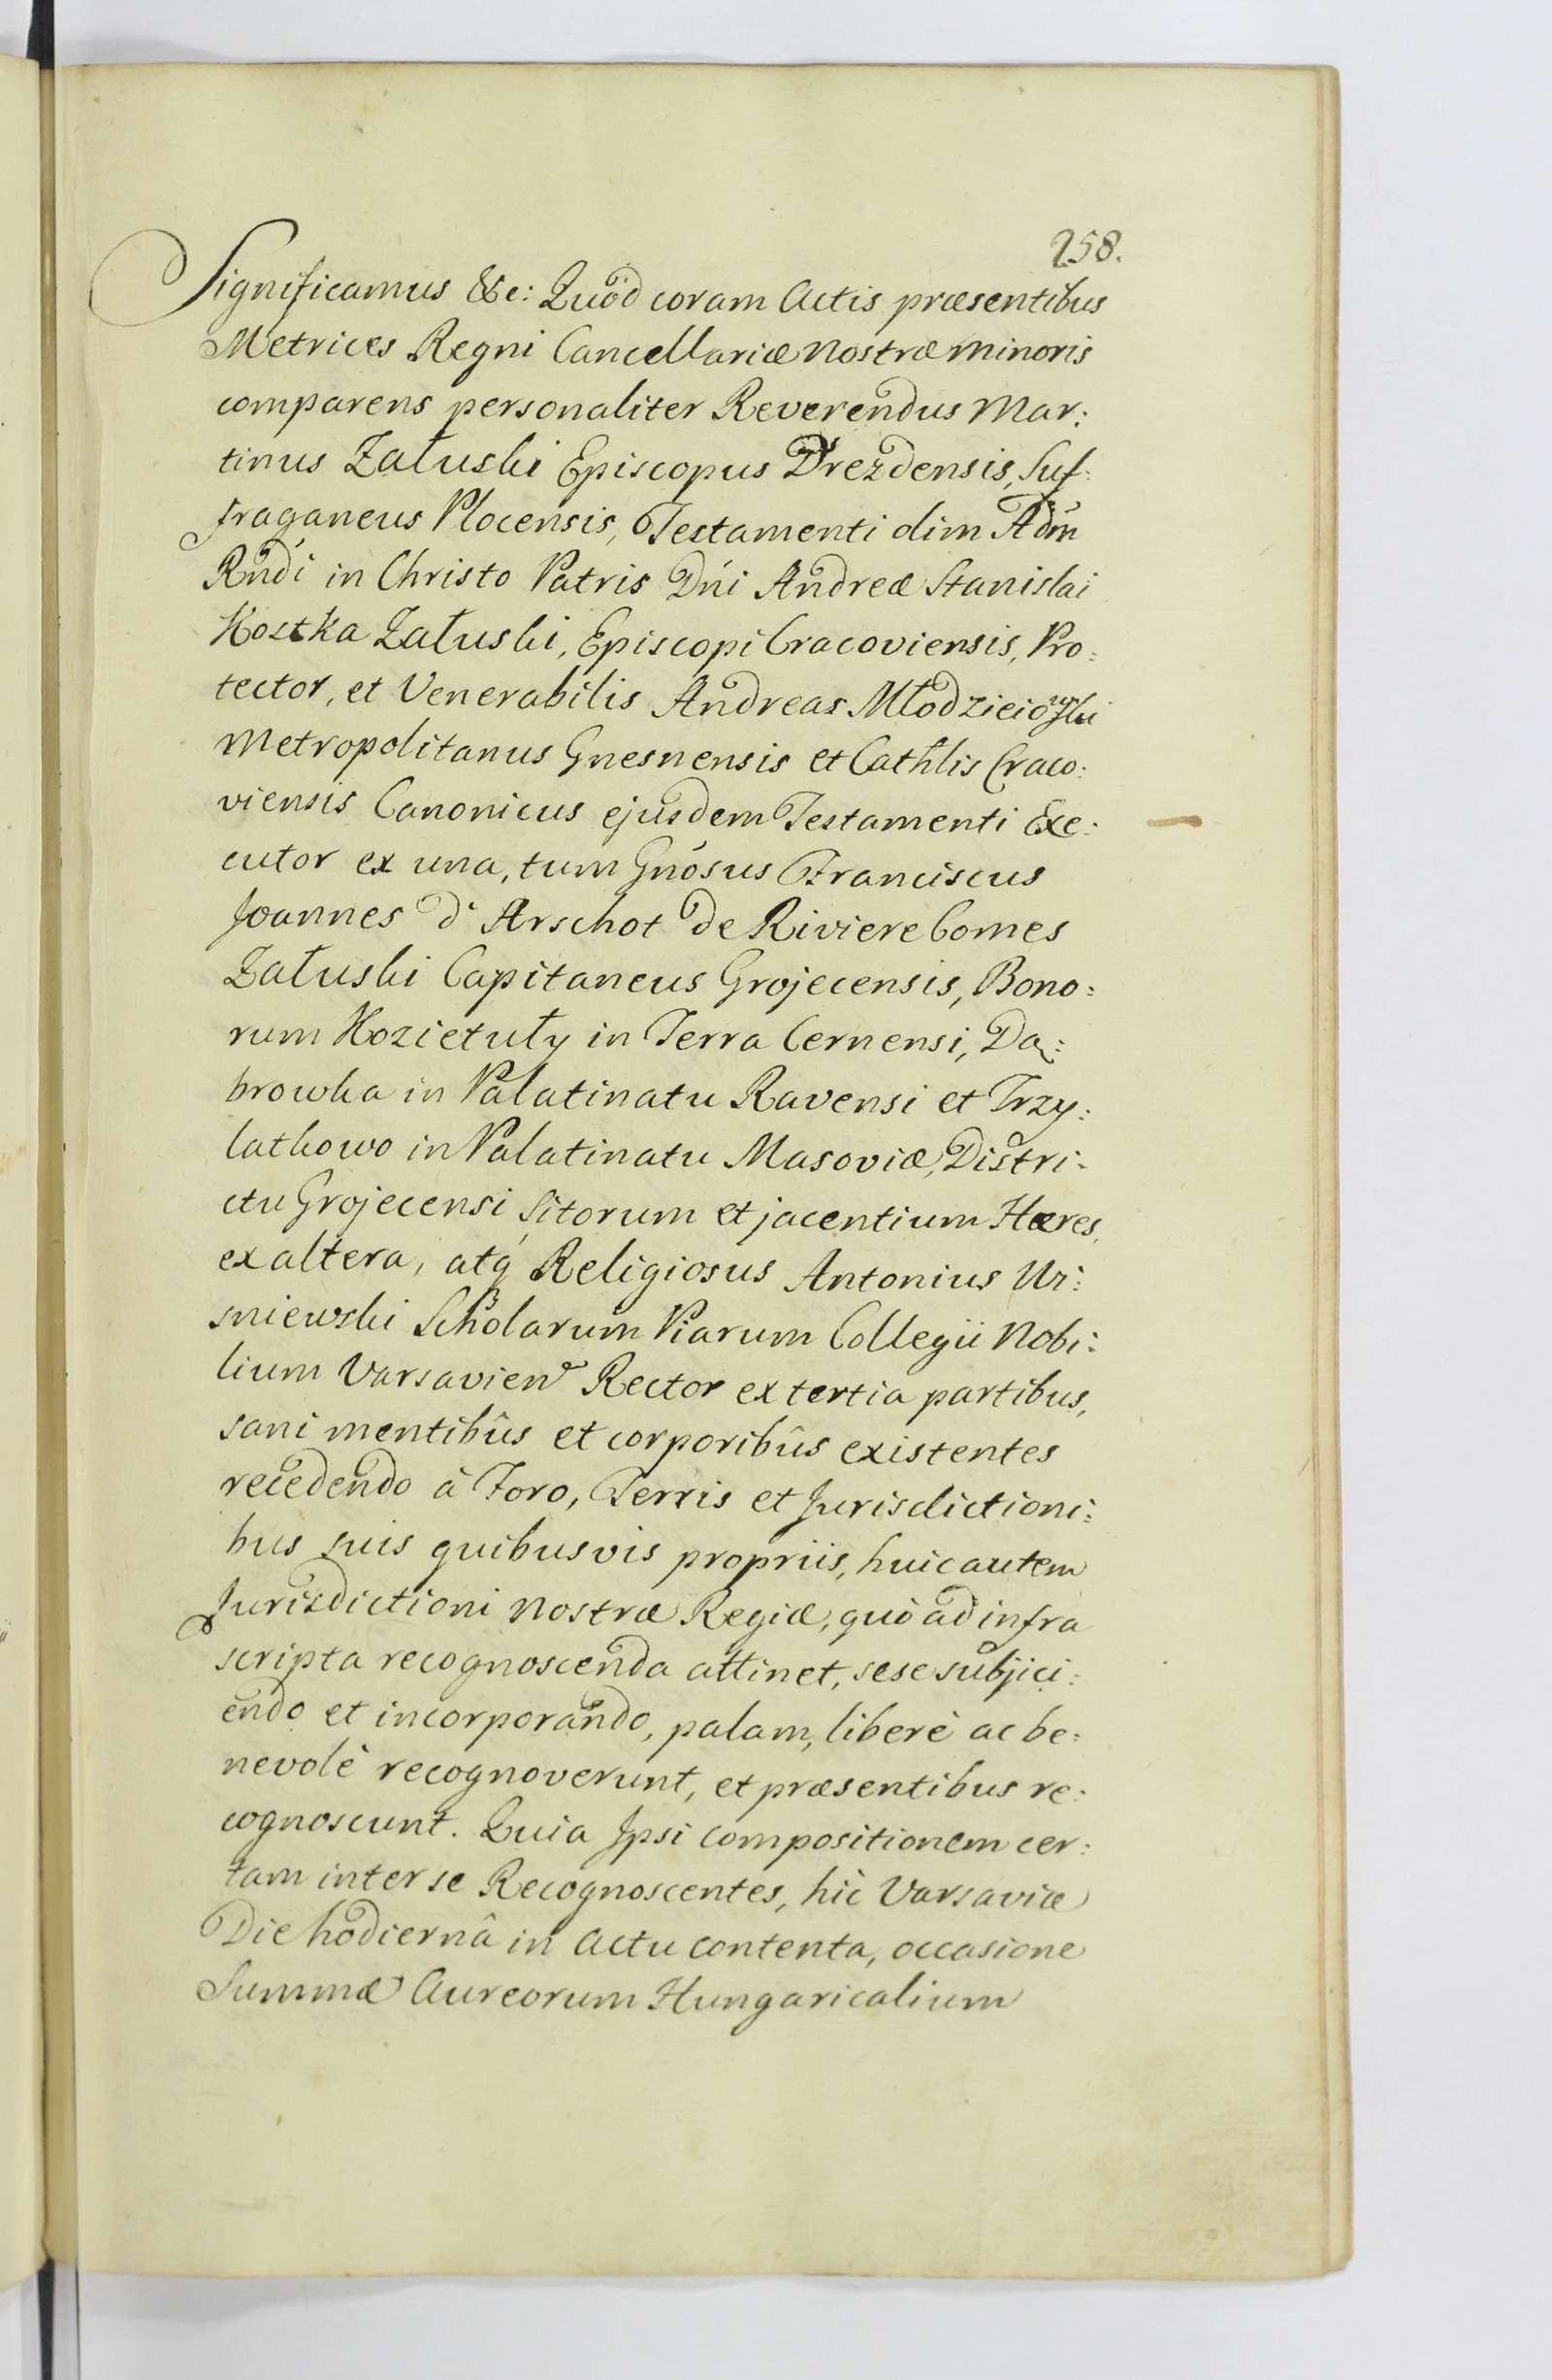 258.
Significamus &c: Quod coram Actis præsentibus
Metrices Regni Cancellariæ Nostræ Minoris
comparens personaliter Reverendus Mar:
tinus Załuski Episcopus Drezdensis, Suf:
fraganeus Plocensis, Testamenti olim Adm̃
Rñdi in Christo Patris Dńi Andreæ Stanislai
Kostka Załuski, Episcopi Cracoviensis, Pro:
tector, et Venerabilis Andreas Młodzieiowski
Metropolitanus Gnesnensis et Cathlis Craco:
viensis Canonicus ejusdem Testamenti Exe:
cutor ex una, tum Gnósus Franciscus
Joannes d' Arschot de Riviere Comes
Załuski Capitaneus Grojecensis, Bono:
rum Kozietuły in Terra Cernensi, Dą:
browka in Palatinatu Ravensi et Trzy:
latkowo in Palatinatu Masoviæ, Distri:
ctu Grojecensi sitorum et jacentium Hæres,
ex altera, atq́ Religiosus Antonius Wi:
sniewski Scholarum Piarum Collegii Nobi:
lium Varsavien Rector ex tertia partibus,
sani mentibûs et corporibûs existentes
recedendo à Foro, Terris et Jurisdictioni:
bus suis quibusvis propriis, huic autem
Jurisdictioni Nostræ Regiæ, quò ad infra
scripta recognoscenda attinet, sese subjici:
endo et incorporando, palam, liberè ac be:
nevolè recognoverunt, et præsentibus re:
cognoscunt. Quia Ipsi compositionem cer:
tam inter se Recognoscentes, hîc Varsaviæ
Die hodiernâ in Actu contenta, occasione
Summæ Aureorum Hungaricalium